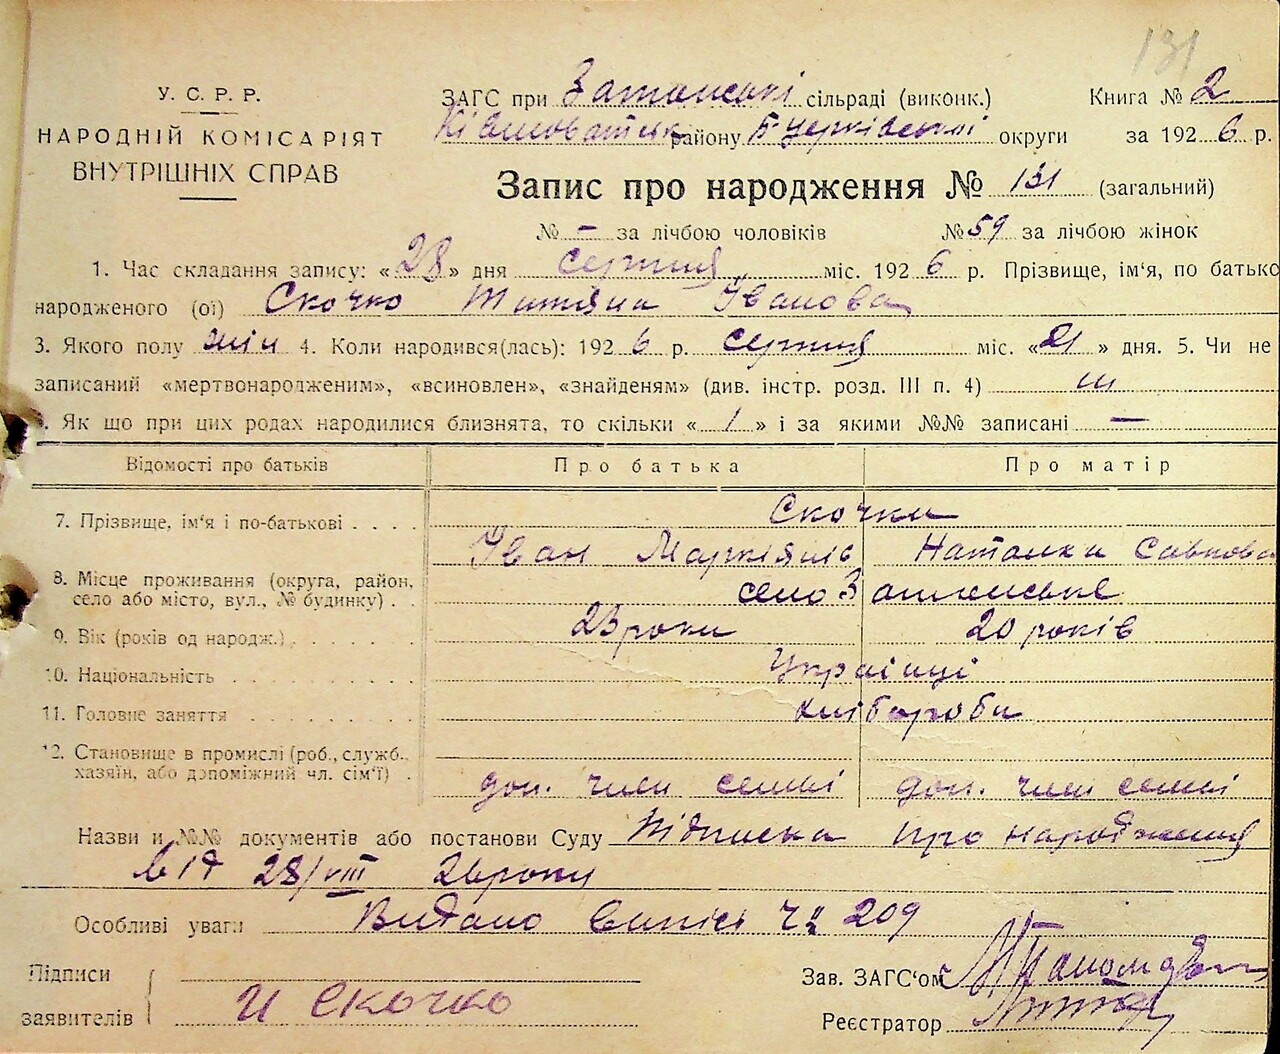 131
У. С. Р. Р.
НАРОДНІЙ КОМІСАРІЯТ
ВНУТРІШНІХ СПРАВ
ЗАГС при сільраді (виконк.) Книга № 2
району Б Церківської округи за 1926 р.
Запис про народження № 131 (загальний)
№ – за лічбою чоловіків № 59 за лічбою жінок
1. Час складання запису: «28» дня серпня міс. 1926 р. Прізвище, ім'я, по батько
народженого (ої) Скочко Титяна Іванова
3. Якого полу жін 4. Коли народився(лась): 1926 р. серпня міс. «21» дня. 5. Чи не
записаний «мертвонародженим», «всиновлен», «знайденям» (див. інстр. розд. III п. 4)
. Як що при цих родах народилися близнята, то скільки «1» і за якими №№ записані —
Відомості про батьків Про батька Про матір
7. Прізвище, ім'я і по-батькові . . . . Скочки
Іван Маркіянів Наталка Савкова
8. Місце проживання (округа, район,
село або місто, вул., № будинку) . . село
9. Вік (років од народж.) . . . . 23 роки 20 років
10. Національність . . . . . . . . Українці
11. Головне заняття . . . . . . . хлібороби
12. Становище в промислі (роб., служб.,
хазяїн, або допоміжний чл. сім'ї) . доп. член семьі доп. член семьі
Назви и №№ документів або постанови Суду Підписка про народження
від 28/VIII 26 року
Особливі уваги Видано випісь Ч 209
Підписи
заявителів И Скочко
Зав. ЗАГС'ом
Реєстратор